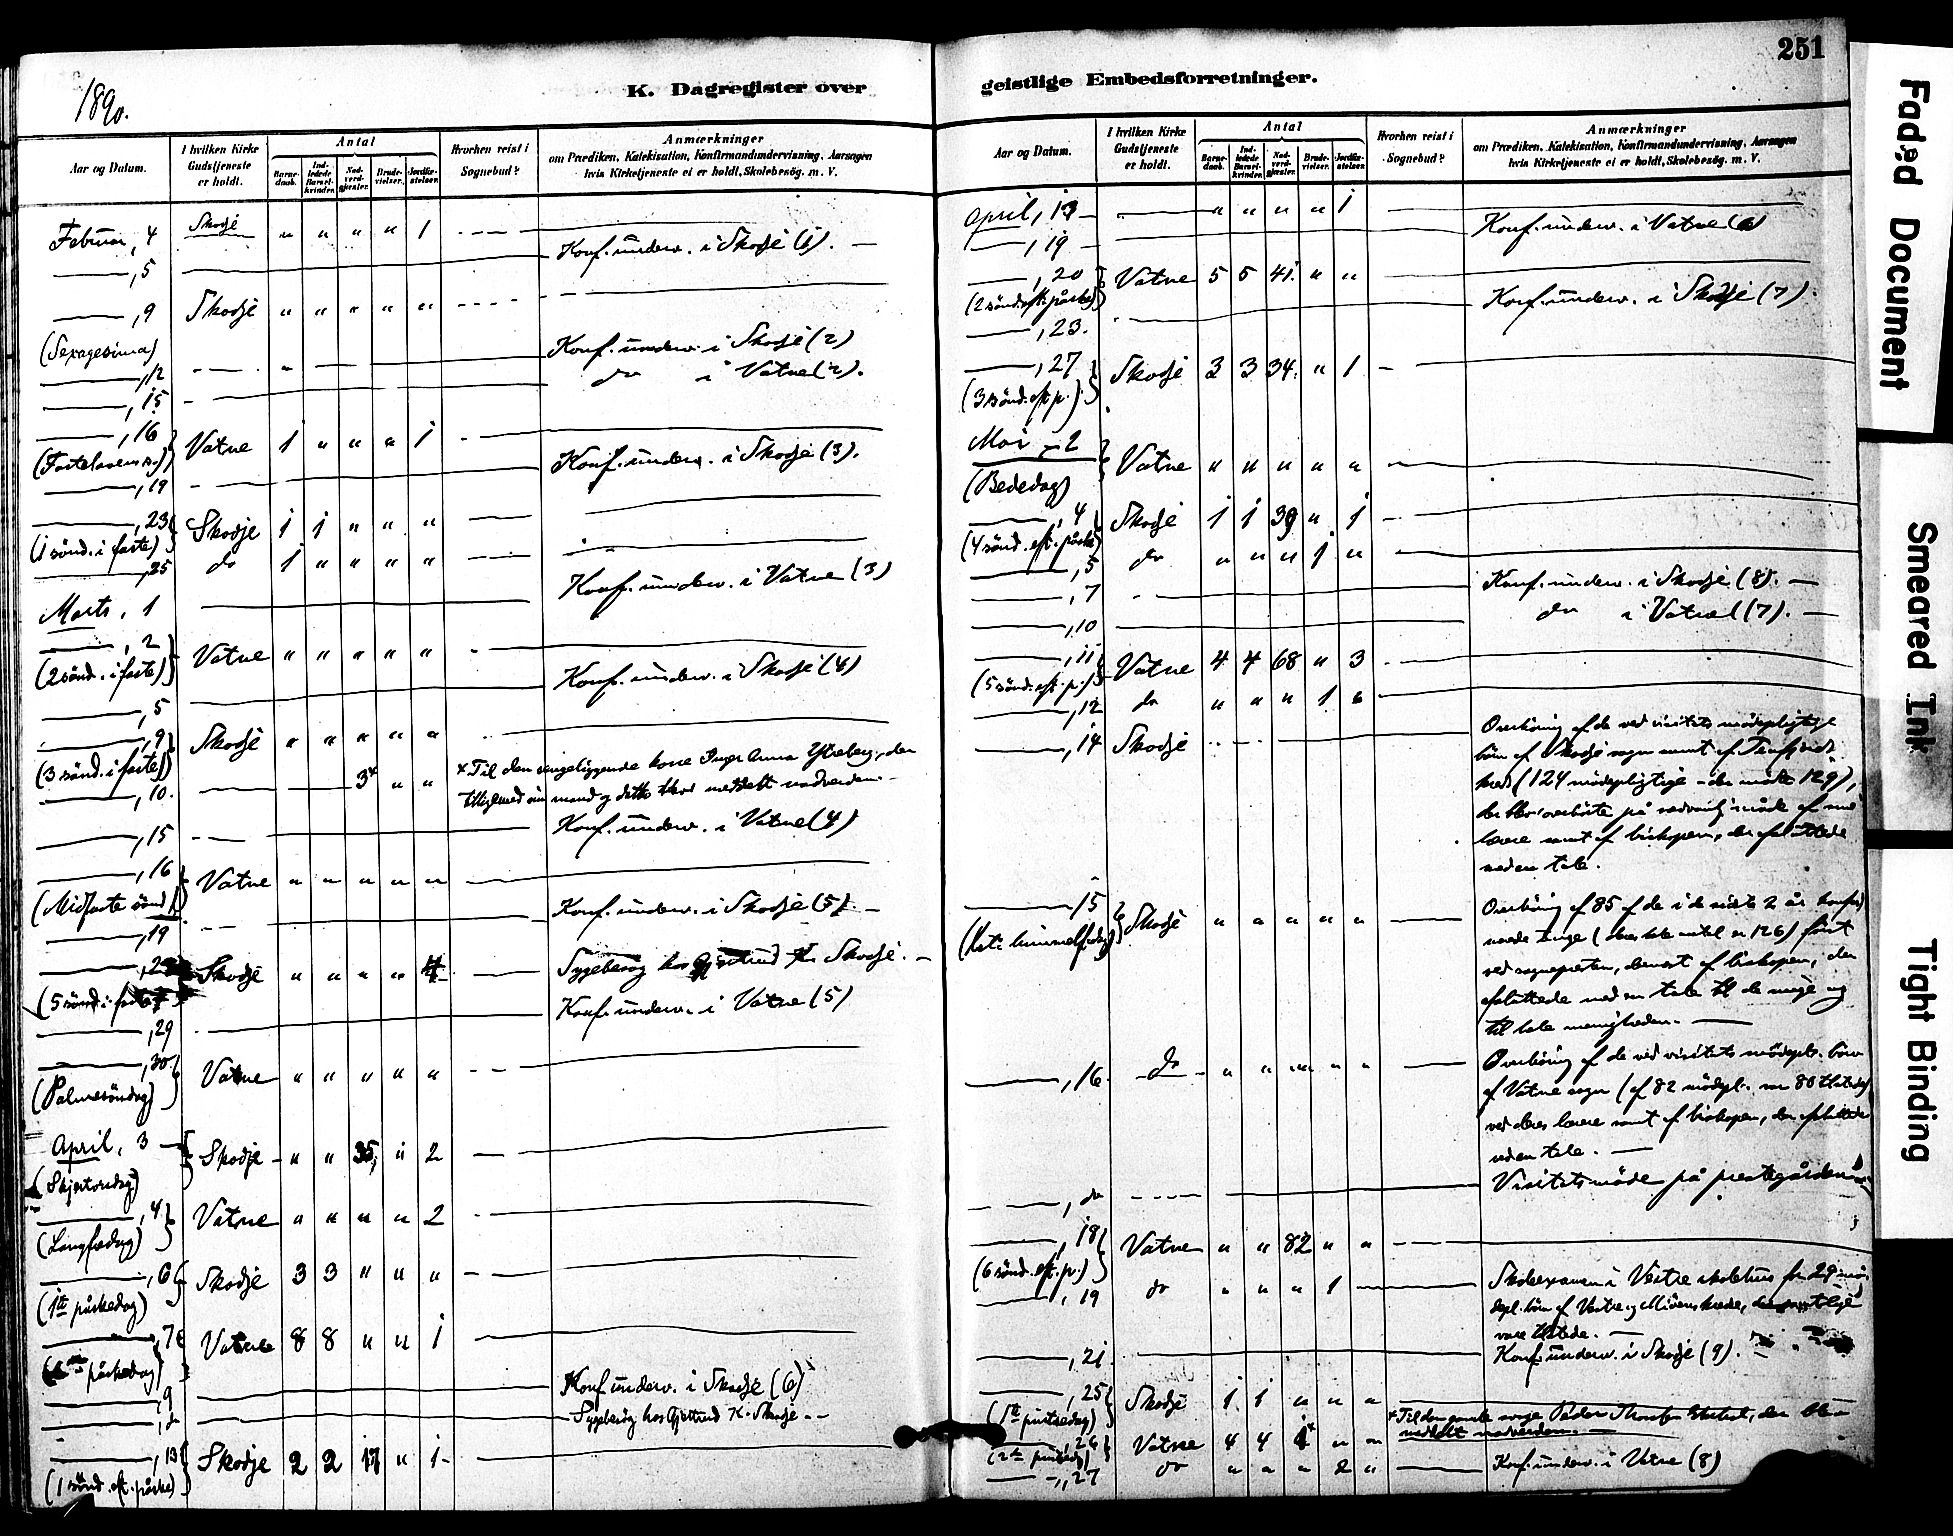 1890.
K. Dagregister over
Aar og Datum.
I hvilken Kirke Gudstjeneste er holdt.
Antal
Barnedaab.
Indledede Barselkvinder.
Nadverdgjester.
Brudevielser.
Jordfæstelser.
Hvorhen reist i Sognebud?
Anmærkninger
om Prædiken, Katekisation, Konfirmandundervisning, Aarsagen
hvis Kirketjeneste ei er holdt, Skolebesøg. m. V.
Februar, 4 Skodje " " " " 1
, 5 Konf. underv. i Skodje (1).
, 9 Skodje " " " " "
(Sexagesima)
, 12 Konf. underv. i Skodje (2)
, 15 do i Vatne (2).
, 16 Vatne 1 " " " 1
(Fastelavenss.)
, 19 Konf. underv. i Skodje (3).
, 23 Skodje 1 1 " " "
(1 sönd. i faste)
, 25 do 1 " " " "
Marts, 1 Konf. underv. i Vatne (3)
, 2 Vatne " " " " "
(2 sönd. i faste)
, 5 Konf. underv. i Skodje (4)
, 9 Skodje " " " " "
(3 sönd. i faste)
, 10. 3× " " × Til den sengeliggende kone Inger Anna Ytreberg, den
tilligemed sin mand og meddelt nadverden.
, 15 Konf. underv. i Vatne (4)
, 16 Vatne " " " " "
(Midfaste sönd.)
, 19 Konf. underv. i Skodje (5)
, 23 Skodje " " " "
(5 sönd. i faste) Sygebesög hos Gjertrud K. Skodje.
, 29 Konf. underv. i Vatne (5)
, 30 Vatne " " " " "
(Palmesöndag)
April, 3 Skodje " " 35 " 2
(Skjærtorsdag)
, 4 Vatne " " " " 2
(Langfredag)
, 6 Skodje 3 3 " " "
(1te påskedag)
, 7 Vatne 8 8 " " 1
(2den påskedag)
, 9 Konf. underv. i Skodje (6)
, do Sygebesög hos Gjertrud K. Skodje
, 13 Skodje 2 2 17 " 1
(1 sönd. eft. påske)
251
geistlige Embedsforretninger.
Aar og Datum.
I hvilken Kirke Gudstjeneste er holdt.
Antal
Barnedaab.
Indledede Barselkvinder.
Nadverdgjester.
Brudevielser.
Jordfæstelser.
Hvorhen reist i Sognebud?
Anmærkninger
om Prædiken, Katekisation, Konfirmandundervisning, Aarsagen
hvis Kirketjeneste ei er holdt, Skolebesøg. m. V.
April, 13 " " " " 1
, 19 Konf. underv. i Vatne (6)
, 20 Vatne 5 5 41. " "
(2 sönd. eft. påske)
, 23. Konf. underv. i Skodje (7).
, 27 Skodje 3 3 34. " 1
(3 sönd. eft. p.)
Mai 2 Vatne " " " " "
(Bededag)
, 4 Skodje 1 1 39 " 1
(4 sönd. eft. påske)
, 5 do " " " 1 "
, 7 Konf. underv. i Skodje (8).
, 10 do i Vatne (7).
, 11 Vatne 4 4 68 " 3
(5 sönd. eft. p.)
, 12 do " " " 1 "
, 14 Skodje Overhöring af de ved visitats mödepligtige
börn af Skodje sogn samt af
kreds (124 mödepligtige - der mödte 129),
der blev overhörte på sedvanlig måde af sine
lærere samt af biskopen, der afsluttede
med en tale.
15 Skodje " " " " "
(Kristi himmelfartsdag) Overhöring af 85 af de i de sidste 2 år konfir-
merede unge (deres hele antal er 126) först
ved sognepresten, dernæst af biskopen, der
afsluttede med en tale til de unge og
til hele menigheden.
, 16. do " " " " " Overhöring af de ved visitats mödepl. börn
af Vatne sogn (af 82 mödepl. var 80 tilstede)
ved deres lærere samt af biskopen, der afsluttede
med en tale.
, do Visitatsmöde på prestegården
, 18 Vatne " " 82 " "
(6 sönd. eft. p.)
, 19 do " " " 1 Skoleexamen i Vestre skolehus for 29 möde-
pl. börn af Vestre og kreds,
vare tilstede.
, 21 Konf. underv. i Skodje (9).
, 25 Skodje 1 1 " " "
(1te pintsedag) × Til den gamle Peder blev
meddelt nadverden.
, 26 Vatne 4 4 1× " "
(2den pintsed.)
, 27 do " " " 2 " Konf. underv. i Vatne (8)
Faded Document
Smeared Ink
Tight Binding